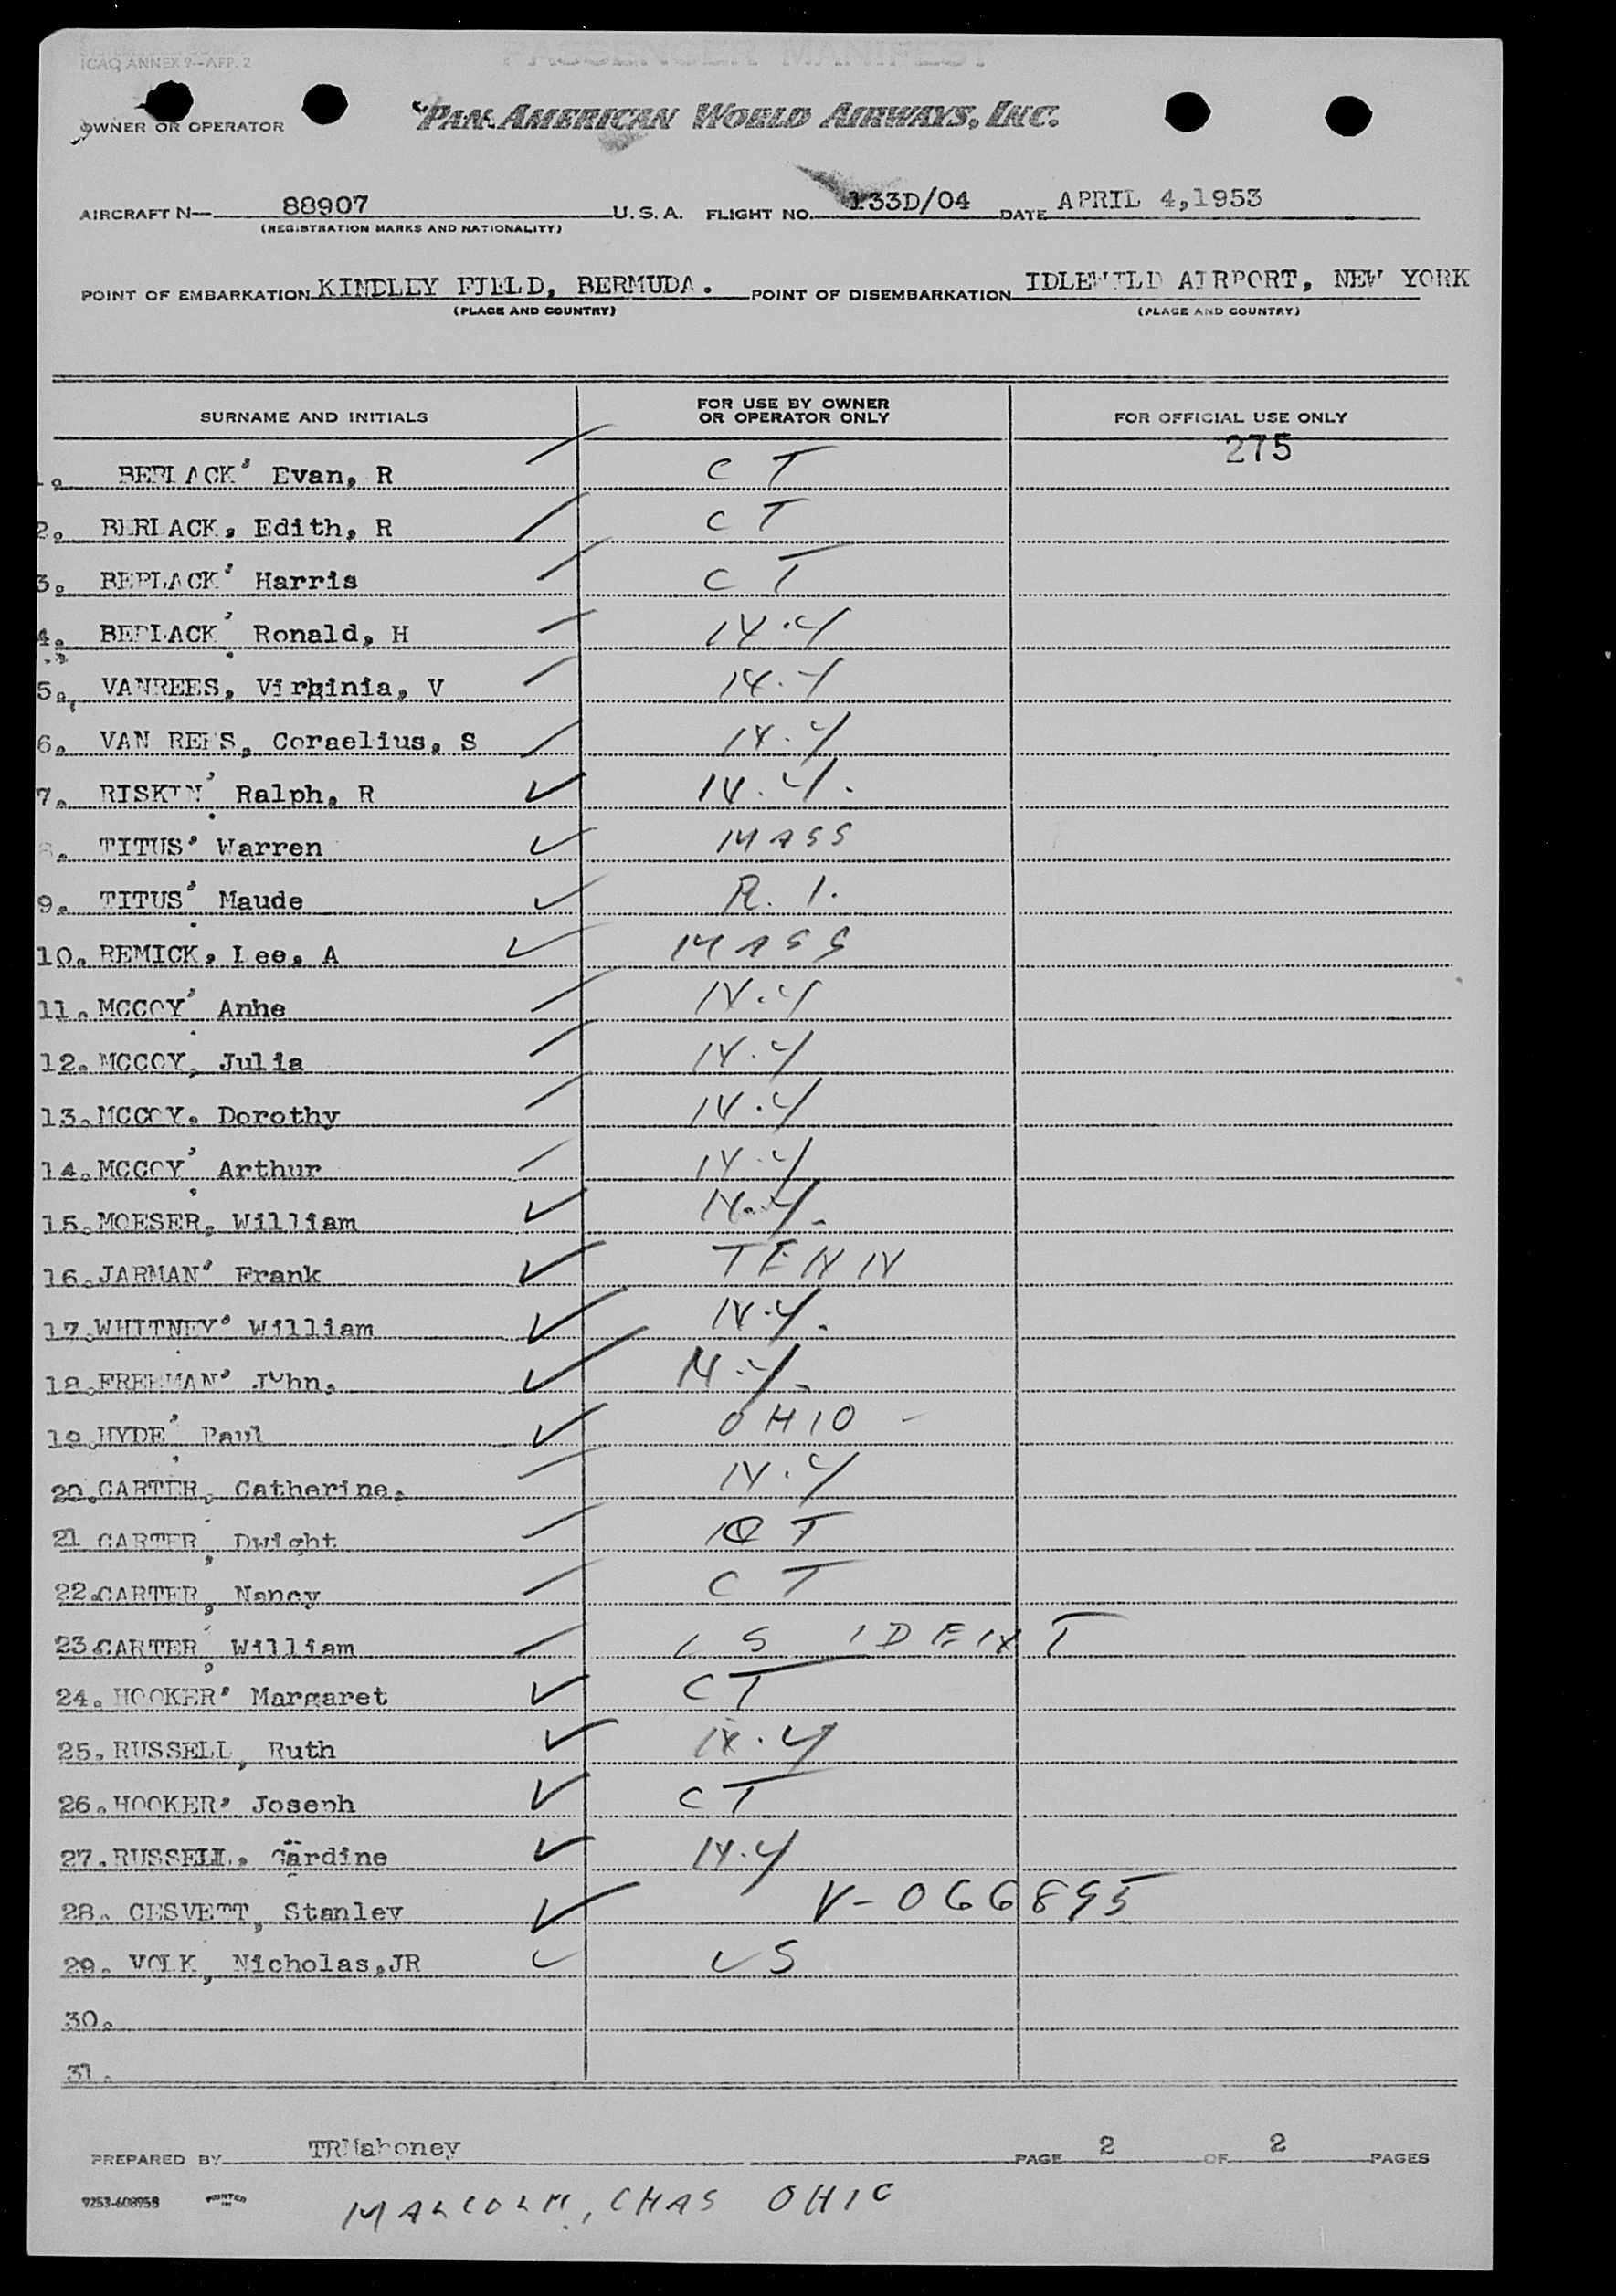 PASSENGER MANIFEST
ICAO ANNEX 9—APP. 2
OWNER OR OPERATOR PAN AMERICAN WORLD AIRWAYS, INC.
AIRCRAFT N— 88907 U. S. A. FLIGHT NO. 133D/04 DATE APRIL 4,1953
(REGISTRATION MARKS AND NATIONALITY)
POINT OF EMBARKATION KINDLEY FIELD, BERMUDA. POINT OF DISEMBARKATION IDLEWILD AIRPORT, NEW YORK
(PLACE AND COUNTRY) (PLACE AND COUNTRY)
SURNAME AND INITIALS FOR USE BY OWNER OR OPERATOR ONLY FOR OFFICIAL USE ONLY
275
1. BERLACK, Evan, R CT
2. BERLACK, Edith, R CT
3. BERLACK, Harris CT
4. BERLACK, Ronald, H N.Y
5. VANREES, Virhinia, V N.Y
6. VAN REES, Coraelius, S N.Y
7. RISKIN, Ralph, R N.Y.
8. TITUS, Warren MASS
9. TITUS, Maude R.I.
10. REMICK, Lee, A MASS
11. MCCOY, Anhe N.Y
12. MCCOY, Julia N.Y
13. MCCOY, Dorothy N.Y
14. MCCOY, Arthur N.Y
15. MOESER, William N.Y.
16. JARMAN, Frank TENN
17. WHITNEY, William N.Y.
18. FREEMAN, John. N.Y.
19. HYDE, Paul OHIO
20. CARTER, Catherine. N.Y
21 CARTER, Dwight CT
22. CARTER, Nancy CT
23. CARTER, William US IDENT
24. HOOKER, Margaret CT
25. RUSSELL, Ruth N.Y
26. HOOKER, Joseph CT
27. RUSSELL, Gardine N.Y
28. CESVETT, Stanley V-066895
29. VOLK, Nicholas,JR US
30.
31.
PREPARED BY TRMahoney PAGE 2 OF 2 PAGES
9253-608958 PRINTED
MALCOLM, CHAS OHIO